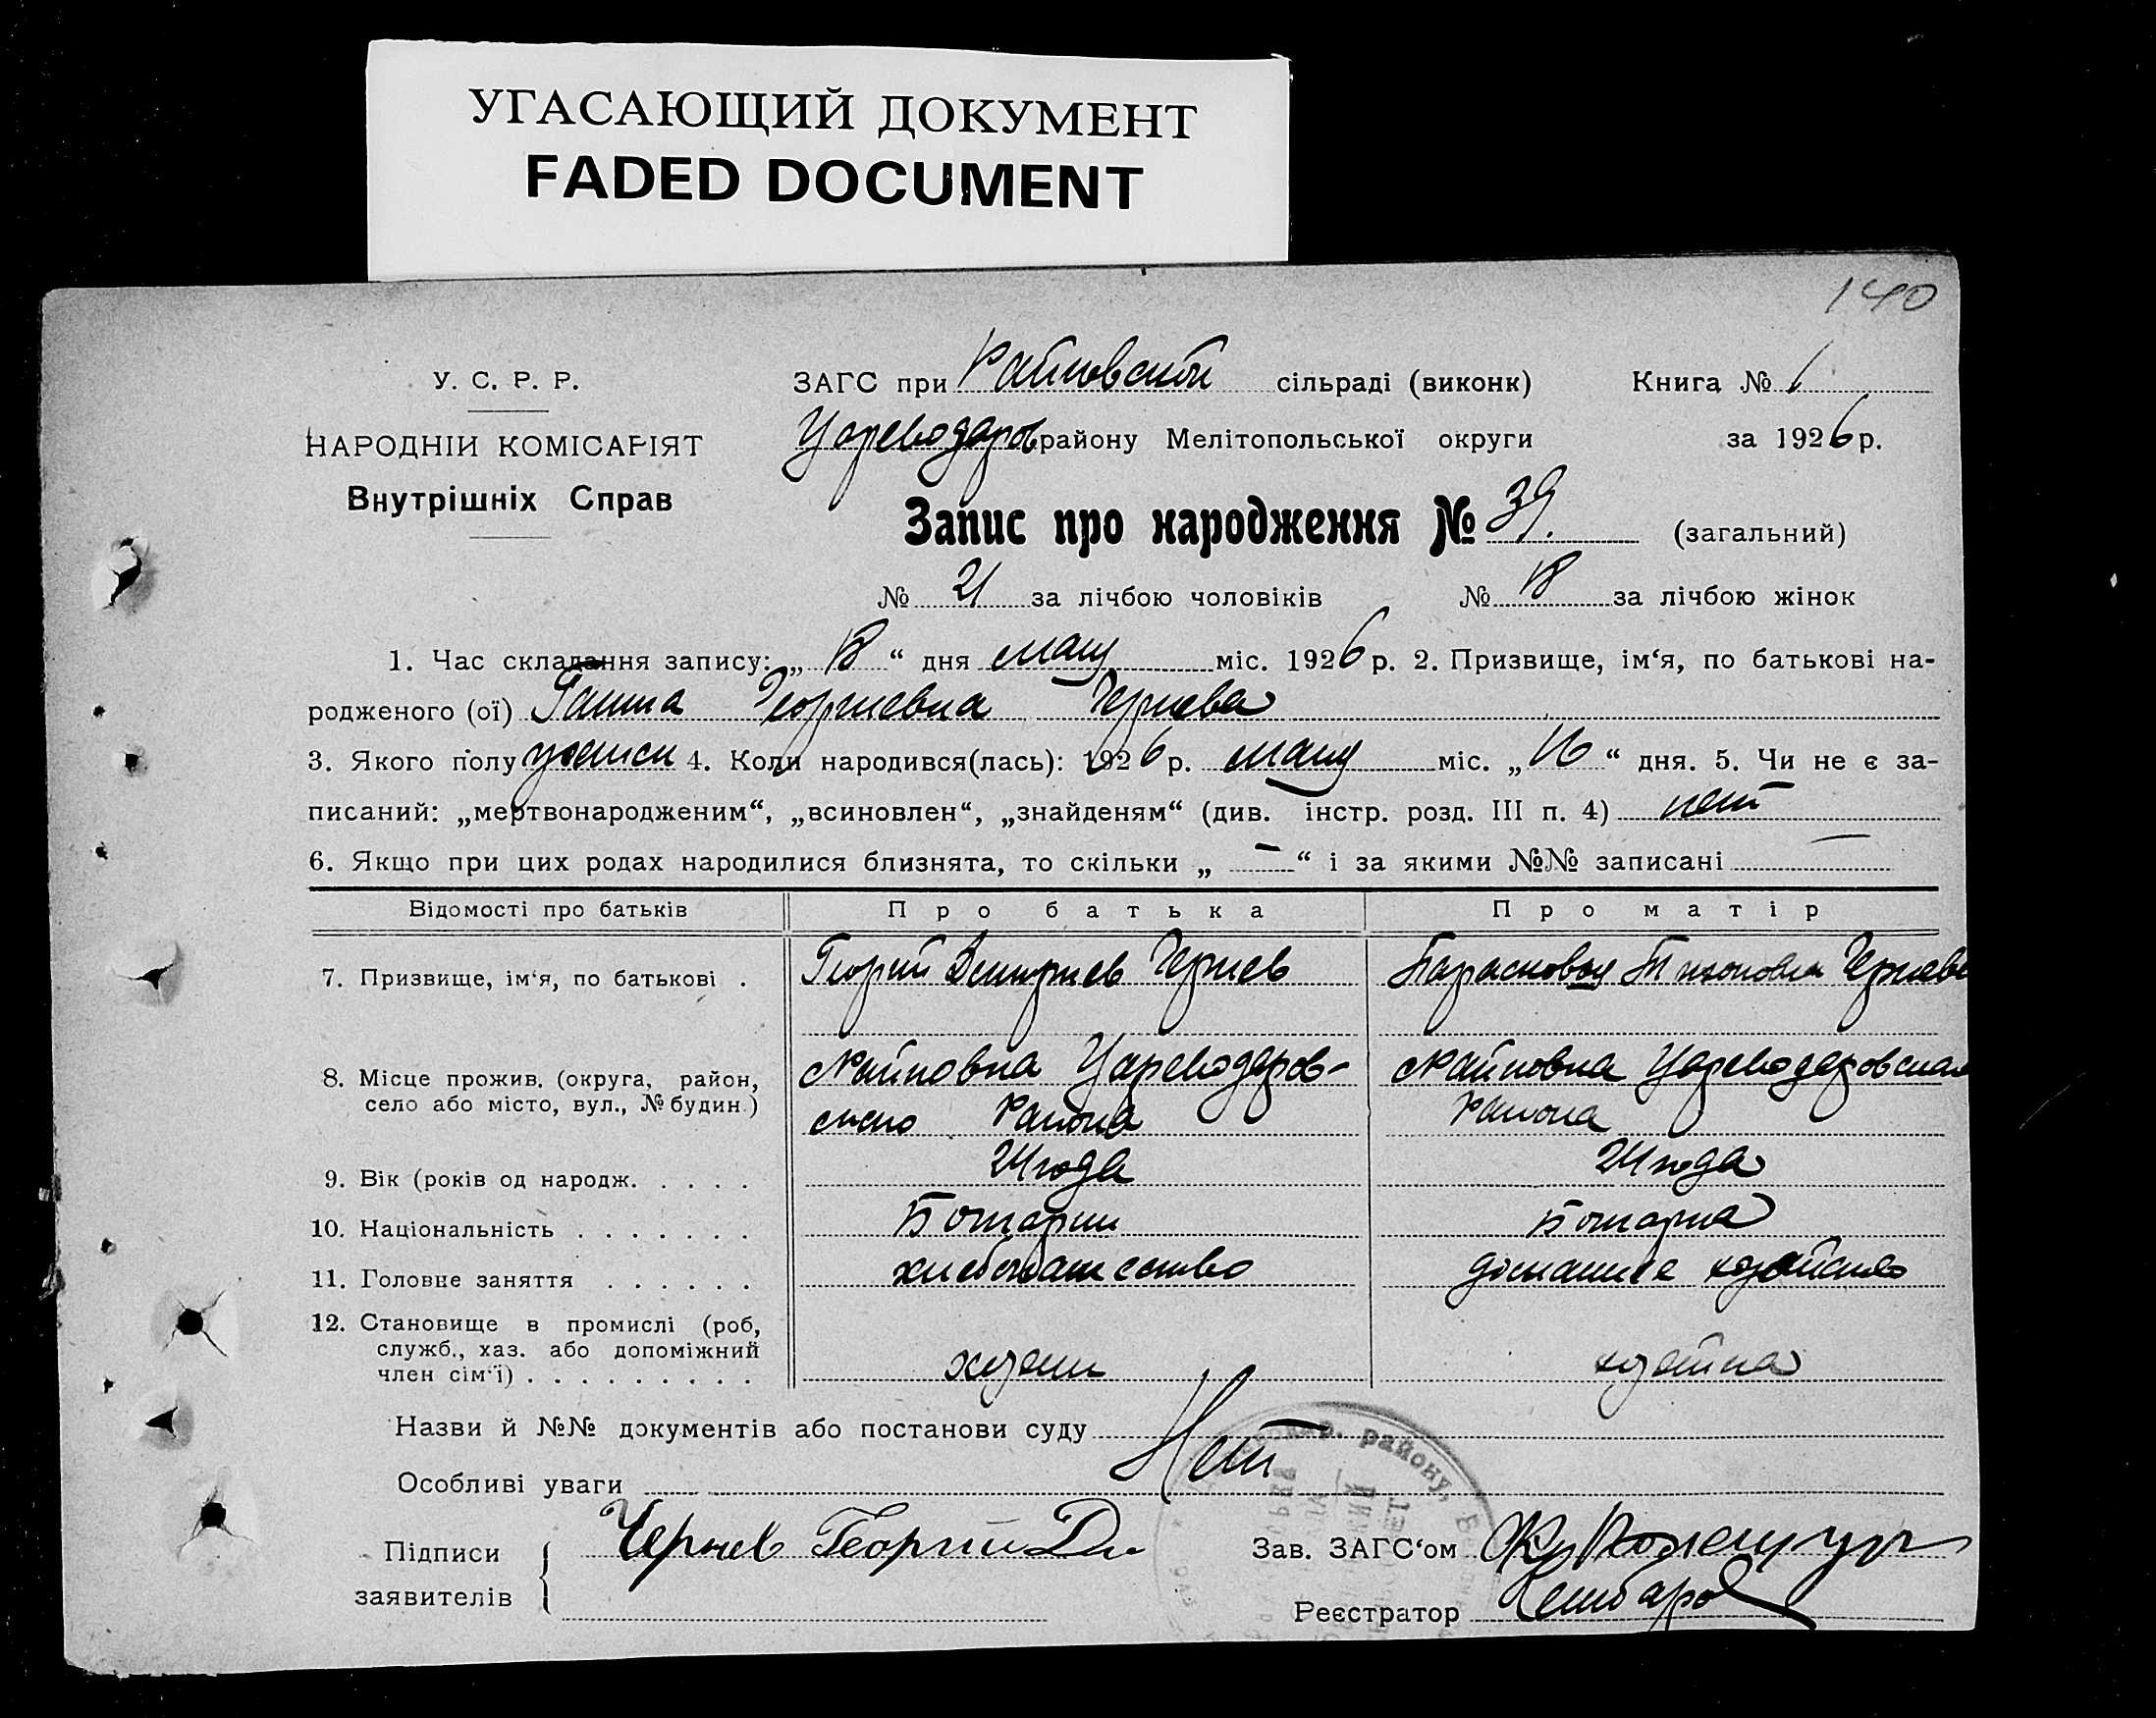 УГАСАЮЩИЙ ДОКУМЕНТ
FADED DOCUMENT
140
У. С. Р. Р.
НАРОДНІЙ КОМІСАРІЯТ
Внутрішніх Справ
ЗАГС при Райновской сільраді (виконк) Книга № 1
Цареводаров району Мелітопольської округи за 1926 р.
Запис про народження № 39. (загальний)
№ 21 за лічбою чоловіків № 18 за лічбою жінок
1. Час складання запису: „ 18 “ дня мая міс. 1926 р. 2. Призвище, ім‘я, по батькові на-
родженого (ої) Ганна Георгиевна Чернева
3. Якого полу женск 4. Коли народився(лась): 1926 р. мая міс. „ 16 “ дня. 5. Чи не є за-
писаний: „мертвонародженим“, „всиновлен“, „знайденям“ (див. інстр. розд. III п. 4) нет
6. Якщо при цих родах народилися близнята, то скільки „ — “ і за якими №№ записані —
Відомості про батьків Про батька Про матір
7. Призвище, ім‘я, по батькові . Георгий Дмитриев Чернев Парасковья Тихоновна Чернева
8. Місце прожив. (округа, район, Райновка Цареводаров- Райновка Цареводаровская
село або місто, вул., № будин.) ского Района Района
9. Вік (років од народж. . . . . 24 года 24 года
10. Національність . . . . . . . Болгарин Болгарка
11. Головне заняття . . . . . . хлебопашество домашнее хозяйство
12. Становище в промислі (роб,
служб., хаз. або допоміжний
член сім‘ї) . . . . . . . . . хозяин хозяйка
Назви й №№ документів або постанови суду Нет
Особливі уваги
Підписи Чернев Георгий Дм Зав. ЗАГС‘ом
заявителів
Реєстратор
району,